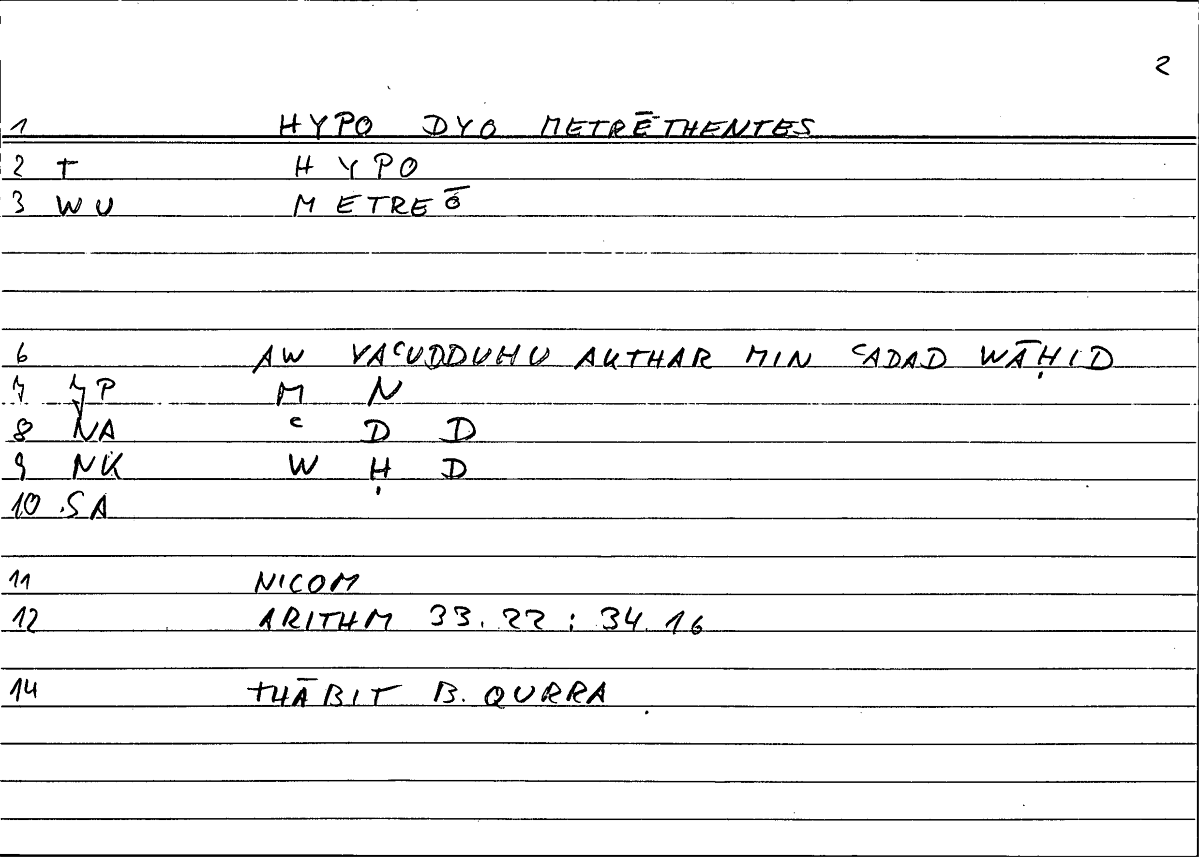 2
1 HYPO DYO METRĒTHENTES
2 T HYPO
3 WU METREŌ
6 AW YAᶜUDDUHU AKTHAR MIN ᶜADAD WĀḤID
7 JP M N
8 NA ᶜ D D
9 NK W Ḥ D
10 SA
11 NICOM
12 ARITHM 33.22 : 34.16
14 THĀBIT B. QURRA